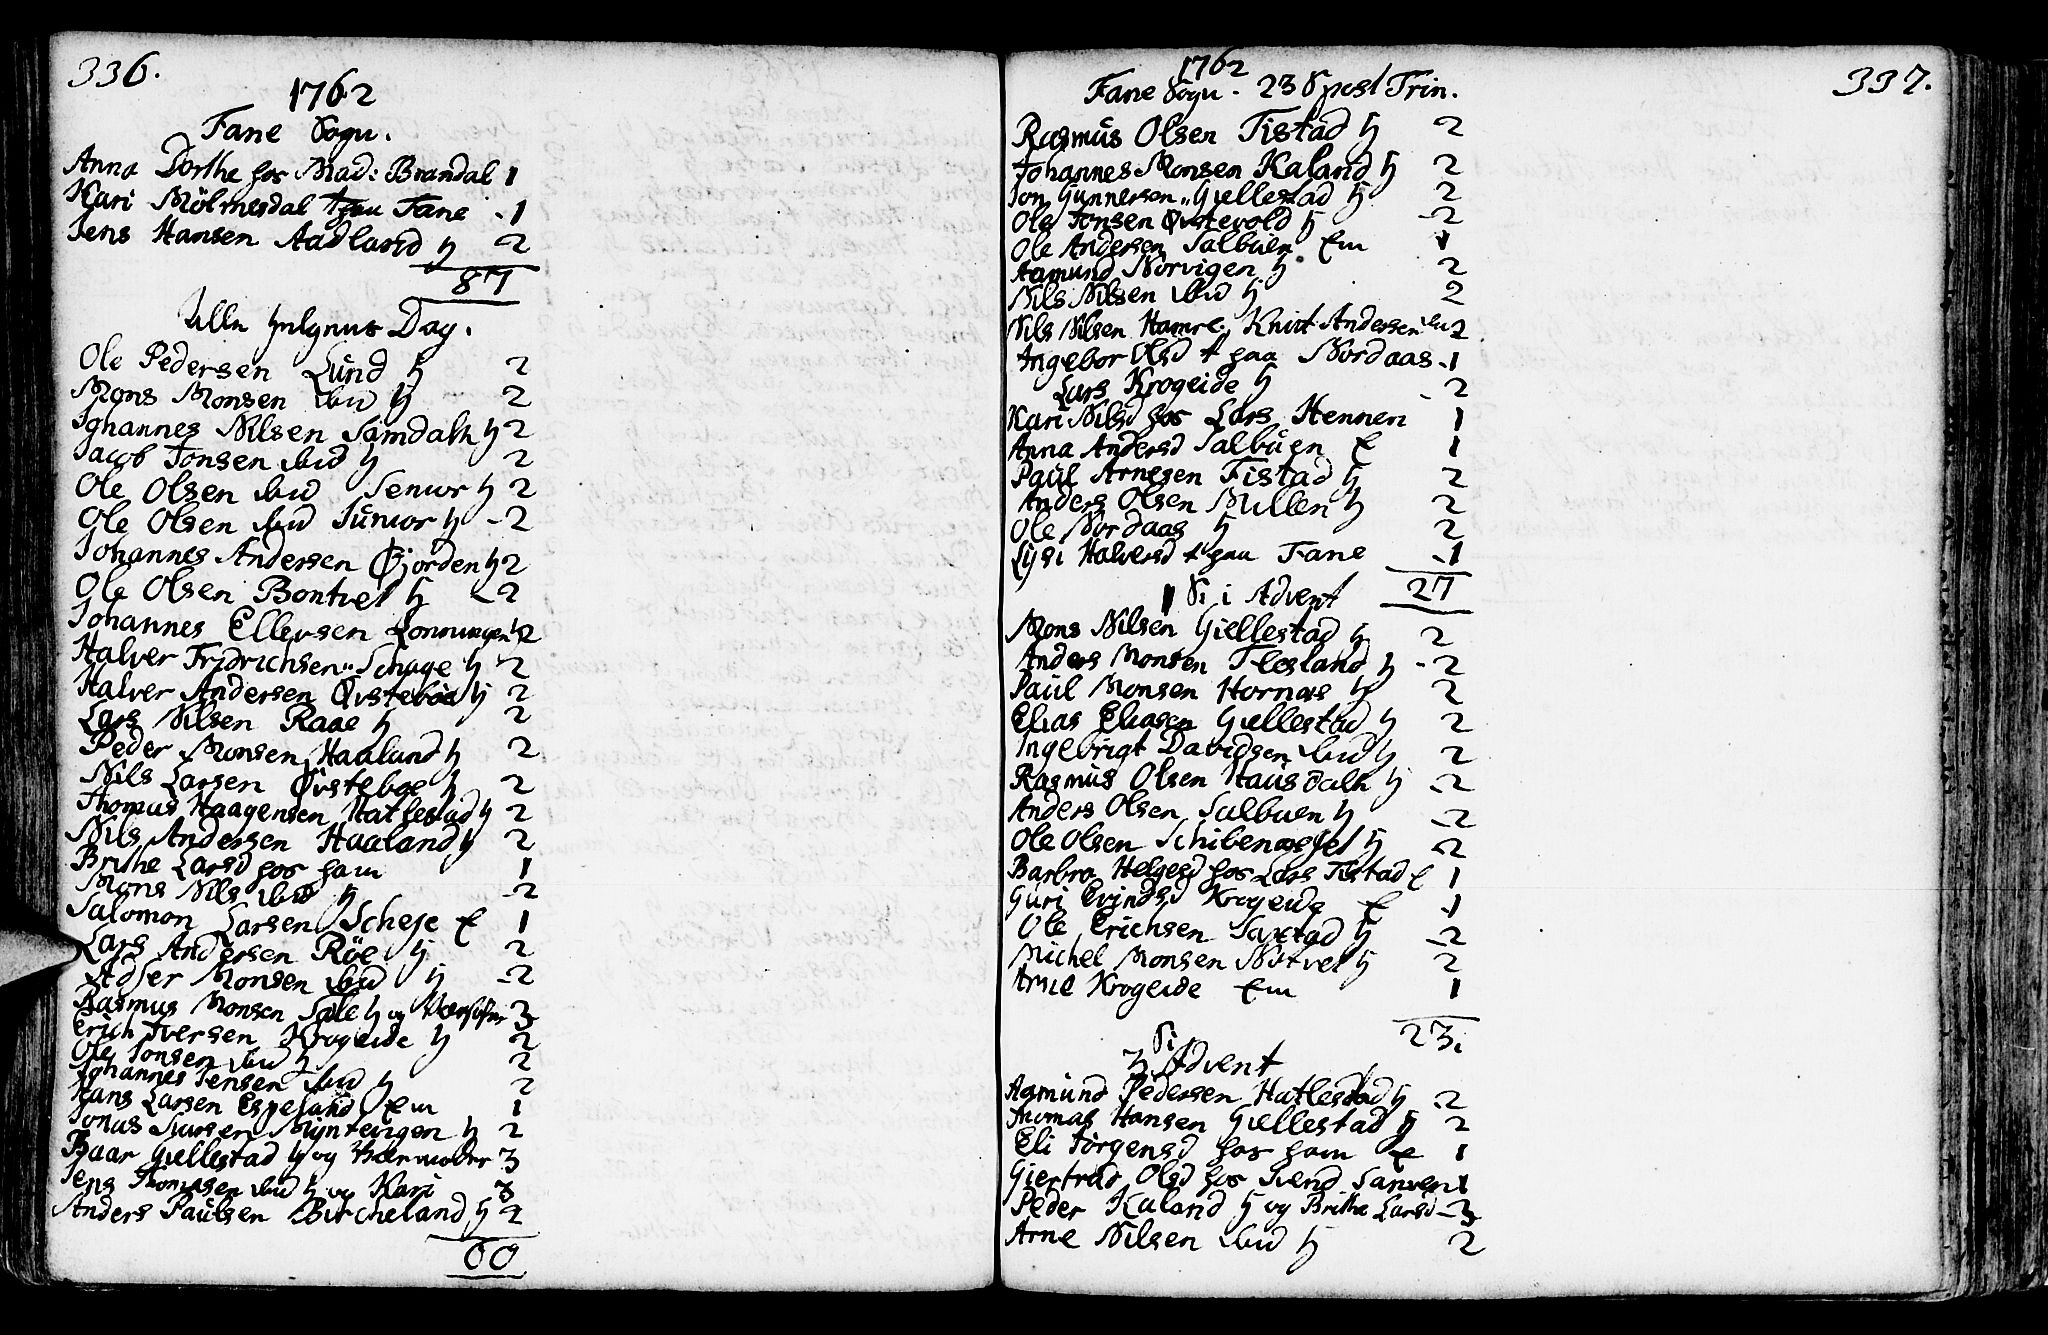 336.
1762
Fane Sogn.
Anna Dorthe hos Mad: Brandal 1
Kari Mölmesdal Fane 1
Jens Hansen Aadland ђ 2
87
Alle Helgens Dag.
Ole Pedersen Lund ђ 2
Mons Monsen ibid ђ 2
Johannes Nilsen Samdalh ђ 2
Jacob Jonsen ibid ђ 2
Ole Olsen ibid Senior ђ 2
Ole Olsen ibid Junior ђ 2
Johannes Andersen Øjorden ђ 2
Ole Olsen Bontvet ђ 2
Johannes Ellersen Lonningen ђ 2
Halver Fridrichsen Schage ђ 2
Halver Andersen Øvsteböe ђ 2
Lars Nilsen Raae ђ 2
Peder Monsen Haaland ђ 2
Nils Larsen Øvsteboe ђ 2
Thomas Haagensen Hatlestad ђ 2
Nils Andersen Haaland ђ 2
Brithe Larsd hos ham 1
Mons Nils ibid ђ 2
Salomon Larsen Scheje E 1
Lars Andersen Röe ђ 2
Adser Monsen ibid ђ 2
Rasmus Monsen Sæle ђ og 3
Erich Iversen Krogeide ђ 2
Ole Jonsen ibid ђ 2
Johannes Jensen ibid ђ 2
Hans Larsen Espeland Em 1
Jonas Myntevigen ђ 2
Baar Giellestad ђ og Værmoder 3
Jens Thomasen ibid ђ og Kari 3
Anders Paulsen Bircheland ђ 2
60
337.
1762
Fane Sogn. 23 S post Trin.
Rasmus Olsen Tistad ђ 2
Johannes Monsen Kaland ђ 2
Jon Gunnersen Giellestad ђ 2
Ole Jonsen Øvstevold ђ 2
Ole Andersen Salbuen Em 1
Aamund Norvigen ђ 2
Nils Nilsen ibid ђ 2
Nils Nilsen Hamre, Knut Andersen 2
Ingebor Olsd paa Nordaas 1
Lars Krogeide ђ 2
Kari Nilsd hos Lars Hennen 1
Anna Andersd Salbuen E 1
Paul Arnesen Tistad ђ 2
Anders Olsen Midlen ђ 2
Ole Nordaas ђ 2
Lysi Halversd paa Fane 1
27
1 S i Advent
Mons Nilsen Giellestad ђ 2
Anders Monsen Flesland ђ 2
Paul Monsen Hornæs ђ 2
Elias Eliasen Giellestad ђ 2
Ingebrigt Davidsen ibid ђ 2
Rasmus Olsen Hausdalh ђ 2
Anders Olsen Salbuen ђ 2
Ole Olsen Schibenæsset ђ 2
Barbra Helgesd hos Lars Tistad E 1
Guri Evindsd Krogeide E 1
Ole Erichsen Saxtad ђ 2
Michel Monsen Nøtvet ђ 2
Arne Krogeide Em 1
23
3 S i Advent
Aamund Pedersen Hatlestad ђ 2
Thomas Hansen Giellestad ђ 2
Eli Jörgensd hos ham E 1
Giertrud Olsd hos Svend Sanven 1
Peder Kaland ђ og Brithe Larsd 3
Arne Nilsen ibid ђ 2